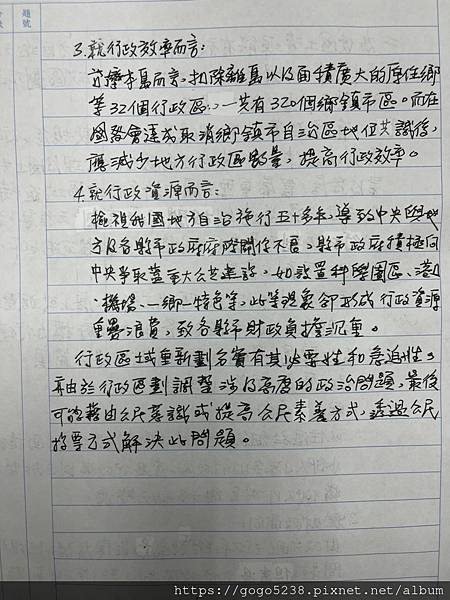 題號
3.就行政效率而言:
台灣本島而言,扣除離島以及面積廣大的原住鄉
等32個行政區,一共有320個鄉鎮市區。而在
國發會達成取消鄉鎮市自治區地位共識後,
應減少地方行政區數量,提高行政效率。
4.就行政資源而言:
檢視我國地方自治施行五十多年,導致中央與地
方及各縣市政府府際關係不良,縣市政府積極向
中央爭取蓋重大公共建設,如設置科學園區、港口
、機場、一鄉一特色等,此等現象卻形成行政資源
重疊浪費,致各縣市財政負擔沉重。
行政區域重新劃分實有其必要性和急迫性,
再由於行政區劃調整涉及高度的政治問題,最後
可能藉由公民意識或提高公民素養方式,透過公民
投票方式解決此問題。
https://gogo5238.pixnet.net/album